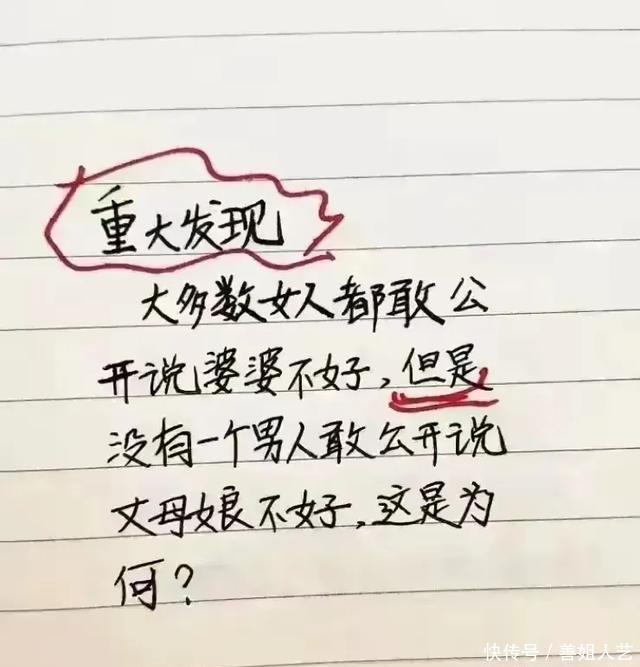 重大发现
大多数女人都敢公
开说婆婆不好,但是
没有一个男人敢公开说
丈母娘不好,这是为
何?
快传号/善姐人艺